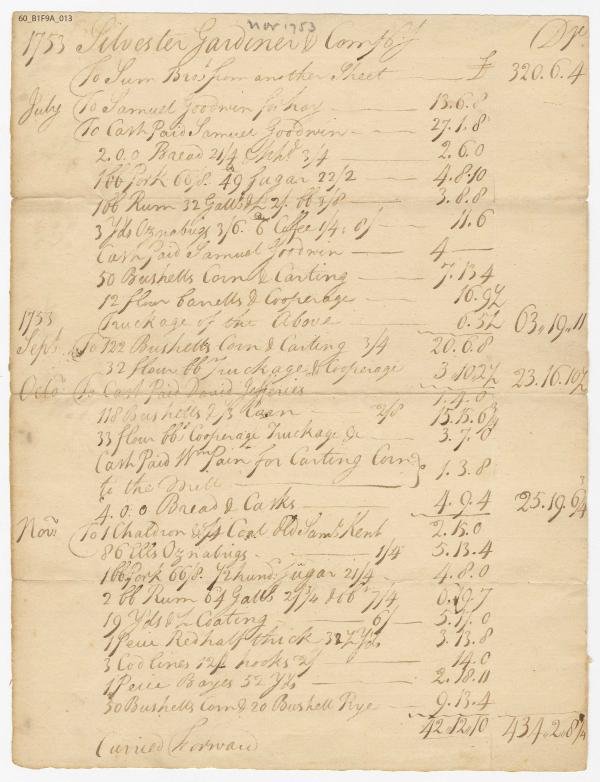 60_B1F9A_013
Nov 1753
1753 Silvester Gardiner & Comp Dr.
To Sum Bro't from another Sheet £ 320.6.4
July To Samuel Goodwin for hay 13.6.8
To Cash Paid Samuel Goodwin 27.1.8
2.0.0 Bread 21/4 3/4 2.6.0
1 bb Pork 66/8. 49 Sugar 22/2 4.8.10
1 bb Rum 32 Galls 2/ bb 3/8 3.8.8
3 Yds Oznabugs 3/6. 6 Coffee 1/4: 8/ 11.6
Cash Paid Samuel Goodwin 4
50 Bushells Corn & Carting 7.13.4
12 flour barrells & Cooperage 16.9½
1753 Truckage of the Above 6.5½ 63.19.11
Sept. To 122 Bushells Corn & Carting 3/4 20.6.8
32 flour bb Truckage & Cooperage 3.10.2½ 23.16.10½
Octo To Cash Paid David Jefferies 1.4.0
118 Bushells & 1/3 2/8 15.15.6¾
33 flour bbs Cooperage Truckage & 3.7.0
Cash Paid Wm Pain for Carting Corn
to the Mill 1.3.8
4.0.0 Bread & Casks 4.9.4 25.19.6¾
Novr To 1 Chaldron & ¼ Coal Saml Kent 2.15.0
86 Ells Oznabugs 1/4 5.13.4
1 bb Pork 66/8. ½ hund. Sugar 21/4 4.8.0
2 bb Rum 64 Galls 2/3¾ & bb 7/4
19 Yds ½ Coating 6/ 5.17.0
1 Peice Red half thick 32½ Yds 3.13.8
3 Cod lines 12/ hooks 2/ 14.0
1 Peice Bayes 52 Yds 2.18.11
50 Bushells Corn & 20 Bushell Rye 9.13.4
42.12.10 434.2.8¼
Carried Forward